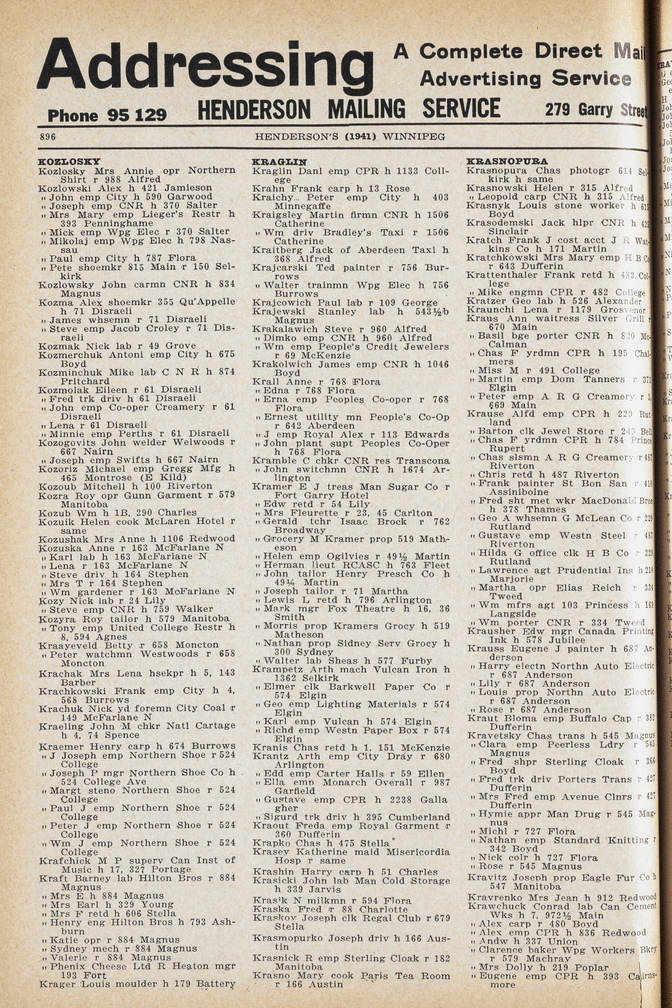 Addressing
A Complete Direct Mail
Advertising Service
Phone 95 129 HENDERSON MAILING SERVICE 279 Garry Street
896 HENDERSON'S (1941) WINNIPEG
KOZLOSKY
Kozlosky Mrs Annie opr Northern
Shirt r 988 Alfred
Kozlowski Alex h 421 Jamieson
„ John emp City h 590 Garwood
„ Joseph emp CNR h 370 Salter
„ Mrs Mary emp Lieger's Restr h
393 Penninghame
„ Mick emp Wpg Elec r 370 Salter
„ Mikolaj emp Wpg Elec h 798 Nas-
sau
„ Paul emp City h 787 Flora
„ Pete shoemkr 815 Main r 150 Sel-
kirk
Kozlowsky John carmn CNR h 834
Magnus
Kozma Alex shoemkr 355 Qu'Appelle
h 71 Disraeli
„ James whsemn r 71 Disraeli
„ Steve emp Jacob Croley r 71 Dis-
raeli
Kozmak Nick lab r 49 Grove
Kozmerchuk Antoni emp City h 675
Boyd
Kozminchuk Mike lab C N R h 874
Pritchard
Kozmoiak Eileen r 61 Disraeli
„ Fred trk driv h 61 Disraeli
„ John emp Co-oper Creamery r 61
Disraeli
„ Lena r 61 Disraeli
„ Minnie emp Perths r 61 Disraeli
Kozogovits John welder Welwoods r
667 Nairn
„ Joseph emp Swifts h 667 Nairn
Kozoriz Michael emp Gregg Mfg h
465 Montrose (E Kild)
Kozoub Mitchell h 100 Riverton
Kozra Roy opr Gunn Garment r 579
Manitoba
Kozub Wm h 1B, 290 Charles
Kozuik Helen cook McLaren Hotel r
same
Kozushak Mrs Anne h 1106 Redwood
Kozuska Anne r 163 McFarlane N
„ Karl lab h 163 McFarlane N
„ Lena r 163 McFarlane N
„ Steve driv h 164 Stephen
„ Mrs T r 164 Stephen
„ Wm gardener r 163 McFarlane N
Kozy Nick lab r 24 Lily
„ Steve emp CNR h 759 Walker
Kozyra Roy tailor h 579 Manitoba
„ Tony emp United College Restr h
8, 594 Agnes
Kraayeveld Betty r 658 Moncton
„ Peter watchmn Westwoods r 658
Moncton
Krachak Mrs Lena hsekpr h 5, 143
Barber
Krachkowski Frank emp City h 4,
568 Burrows
Krachuk Nick yd foremn City Coal r
149 McFarlane N
Kraeling John M chkr Natl Cartage
h 4, 74 Spence
Kraemer Henry carp h 674 Burrows
„ J Joseph emp Northern Shoe r 524
College
„ Joseph P mgr Northern Shoe Co h
524 College Ave
„ Margt steno Northern Shoe r 524
College
„ Paul J emp Northern Shoe r 524
College
„ Peter J emp Northern Shoe r 524
College
„ Wm J emp Northern Shoe r 524
College
Krafchick M P superv Can Inst of
Music h 17, 327 Portage
Kraft Barney lab Hilton Bros r 884
Magnus
„ Mrs E h 884 Magnus
„ Mrs Earl h 329 Young
„ Mrs F retd h 606 Stella
„ Henry eng Hilton Bros h 793 Ash-
burn
„ Katie opr r 884 Magnus
„ Sydney mech r 884 Magnus
„ Valerie r 884 Magnus
„ Phenix Cheese Ltd R Heaton mgr
193 Fort
Krager Louis moulder h 179 Battery
KRAGLIN
Kraglin Danl emp CPR h 1133 Coll-
ege
Krahn Frank carp h 13 Rose
Kraichy Peter emp City h 403
Minnegaffe
Kraigsley Martin firmn CNR h 1506
Catherine
„ Wm driv Bradley's Taxi r 1506
Catherine
Kraitberg Jack of Aberdeen Taxi h
368 Alfred
Krajcarski Ted painter r 756 Bur-
rows
„ Walter trainmn Wpg Elec h 756
Burrows
Krajcowich Paul lab r 109 George
Krajewski Stanley lab h 543½b
Magnus
Krakalawich Steve r 960 Alfred
„ Dimko emp CNR h 960 Alfred
„ Wm emp People's Credit Jewelers
r 69 McKenzie
Krakolwich James emp CNR h 1046
Boyd
Krall Anne r 768 Flora
„ Edna r 768 Flora
„ Erna emp Peoples Co-oper r 768
Flora
„ Ernest utility mn People's Co-Op
r 642 Aberdeen
„ J emp Royal Alex r 113 Edwards
„ John plant supt Peoples Co-Oper
h 768 Flora
Kramble C chkr CNR res Transcona
„ John switchmn CNR h 1674 Ar-
lington
Kramer E J treas Man Sugar Co r
Fort Garry Hotel
„ Edw retd r 54 Lily
„ Mrs Fleurette r 23, 45 Carlton
„ Gerald tchr Isaac Brock r 762
Broadway
„ Grocery M Kramer prop 519 Math-
eson
„ Helen emp Ogilvies r 49½ Martin
„ Herman lieut RCASC h 763 Fleet
„ John tailor Henry Presch Co h
49½ Martin
„ Joseph tailor r 71 Martha
„ Lewis L retd h 796 Arlington
„ Mark mgr Fox Theatre h 16, 36
Smith
„ Morris prop Kramers Grocy h 519
Matheson
„ Nathan prop Sidney Serv Grocy h
300 Sydney
„ Walter lab Sheas h 577 Furby
Krampetz Arth mach Vulcan Iron h
1362 Selkirk
„ Elmer clk Barkwell Paper Co r
574 Elgin
„ Geo emp Lighting Materials r 574
Elgin
„ Karl emp Vulcan h 574 Elgin
„ Richd emp Westn Paper Box r 574
Elgin
Kranis Chas retd h 1, 151 McKenzie
Krantz Arth emp City Dray r 680
Arlington
„ Edd emp Carter Halls r 59 Ellen
„ Ella emn Monarch Overall r 987
Garfield
„ Gustave emp CPR h 2238 Galla
gher
„ Sigurd trk driv h 395 Cumberland
Kraout Freda emp Royal Garment r
360 Dufferin
Krapko Chas h 475 Stella
Krasey Katherine maid Misericordia
Hosp r same
Krashin Harry carp h 51 Charles
Krasicki John lab Man Cold Storage
h 339 Jarvis
Krasik N milkmn r 594 Flora
Kraska Fred r 88 Charlotte
Kraskov Joseph clk Regal Club r 679
Stella
Krasmopurko Joseph driv h 166 Aus-
tin
Krasnick R emp Sterling Cloak r 182
Manitoba
Krasno Mary cook Paris Tea Room
r 166 Austin
KRASNOPURA
Krasnopura Chas photogr 614 Sel-
kirk h same
Krasnowski Helen r 315 Alfred
„ Leopold carp CNR h 315 Alfred
Krasnyk Louis stone worker h
Boyd
Krasodemski Jack hlpr CNR h
Sinclair
Kratch Frank J cost acct J R Wat-
kins Co h 171 Martin
Kratchkowski Mrs Mary emp H B Co
r 643 Dufferin
Krattenthaler Frank retd h 482 Col-
lege
„ Mike engmn CPR r 482 College
Kratzer Geo lab h 526 Alexander
Kraunchi Lena r 1179 Grosvenor
Kraus Ann waitress Silver Grill r
670 Main
„ Basil bge porter CNR h 820 Mc-
Calman
„ Chas F yrdmn CPR h 195 Chal-
mers
„ Miss M r 491 College
„ Martin emp Dom Tanners r 371
Elgin
„ Peter emp A R G Creamery r 1,
669 Main
Krause Alfd emp CPR h 229 Rut
land
„ Barton clk Jewel Store r 249 Bell
„ Chas F yrdmn CPR h 784 Prince
Rupert
„ Chas slsmn A R G Creamery r 487
Riverton
„ Chris retd h 487 Riverton
„ Frank painter St Bon San r
Assiniboine
„ Fred sht met wkr MacDonald Bros
h 378 Thames
„ Geo A whsemn G McLean Co r 229
Rutland
„ Gustave emp Westn Steel r 487
Riverton
„ Hilda G office clk H B Co r 229
Rutland
„ Lawrence agt Prudential Ins h
Marjorie
„ Martha opr Elias Reich r 334
Tweed
„ Wm mfrs agt 103 Princess h
Langside
„ Wm porter CNR r 334 Tweed
Krausher Edw mgr Canada Printing
Ink h 578 Jubilee
Krauss Eugene J painter h 687 An-
derson
„ Harry electn Northn Auto Electric
r 687 Anderson
„ Lily r 687 Anderson
„ Louis prop Northn Auto Electric
r 687 Anderson
„ Rose r 687 Anderson
Kraut Bloma emp Buffalo Cap r
Dufferin
Kravetsky Chas trans h 545 Magnus
„ Clara emp Peerless Ldry r 545
Magnus
„ Fred shpr Sterling Cloak r 366
Boyd
„ Fred trk driv Porters Trans r 427
Dufferin
„ Mrs Fred emp Avenue Clnrs r 427
Dufferin
„ Hymie appr Man Drug r 545 Mag-
nus
„ Michl r 727 Flora
„ Nathan emp Standard Knitting r
342 Boyd
„ Nick colr h 727 Flora
„ Rose r 545 Magnus
Kravitz Joseph prop Eagle Fur Co h
547 Manitoba
Kravrenko Mrs Jean h 912 Redwood
Krawchuck Conrad lab Can Cement
Wks h 7, 972½ Main
„ Alex carp r 480 Boyd
„ Alex emp CPR h 836 Redwood
„ Andw h 337 Union
„ Clarence baker Wpg Workers Bkry
r 579 Machray
„ Mrs Dolly h 219 Poplar
„ Eugene emp CPR h 393 Cairns-
more